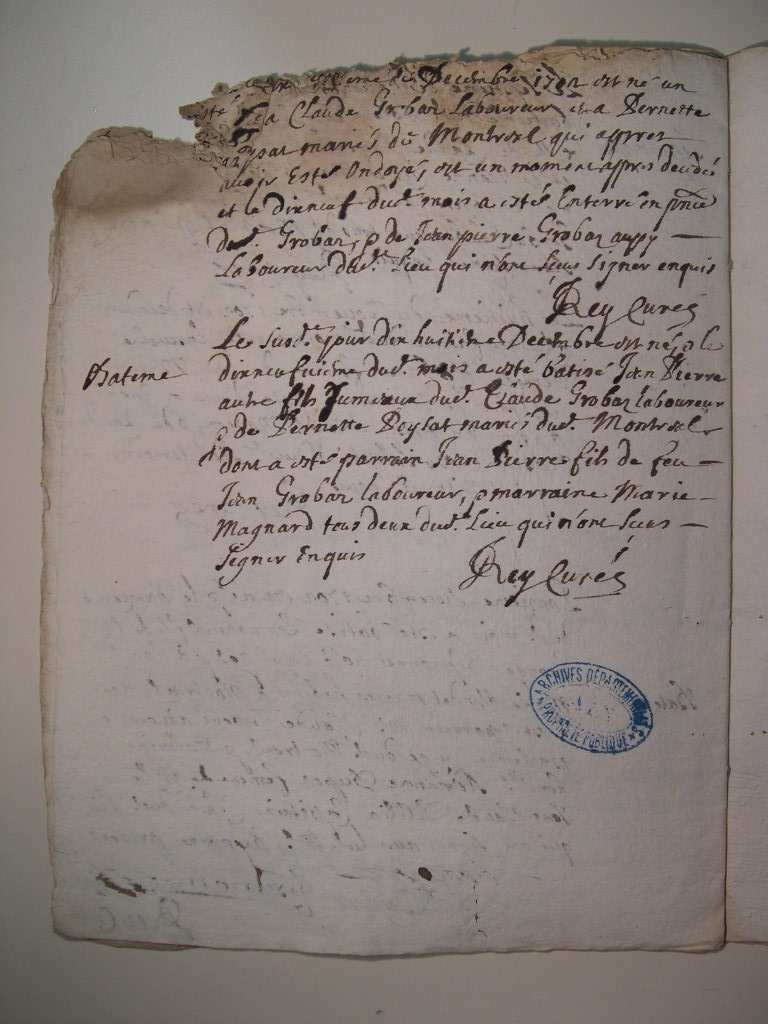 de Decembre 1702 est né un
a Claude Grobaz Laboureur et a Pernette
mariés de Montroel qui appres
avoir Estés Ondoyé, est un moment appres decedé
et le dixneuf dud. mois a estés Enterré en pnce
dud. Grobaz, & de Jean pierre Grobaz aussy
Laboureur dud. Lieu qui n'ont sceus signer enquis
Rey Curés
Le susd. jour dix huitieme Decembre est né, & le
Batême
dixneufvieme dud. mois a esté batisé Jean Pierre
autre fils Jumeaux dud. Claude Grobaz laboureur
& de Pernette Peysat mariés dud. Montroel
dont a estés parrain Jean Pierre fils de feu
Jean Grobaz laboureur, & marraine Marie
Magnard tous deux dud. Lieu qui n'ont sceus
signer Enquis
Rey Curés
ARCHIVES DÉPARTEMENTALES
PROPRIÉTÉ PUBLIQUE